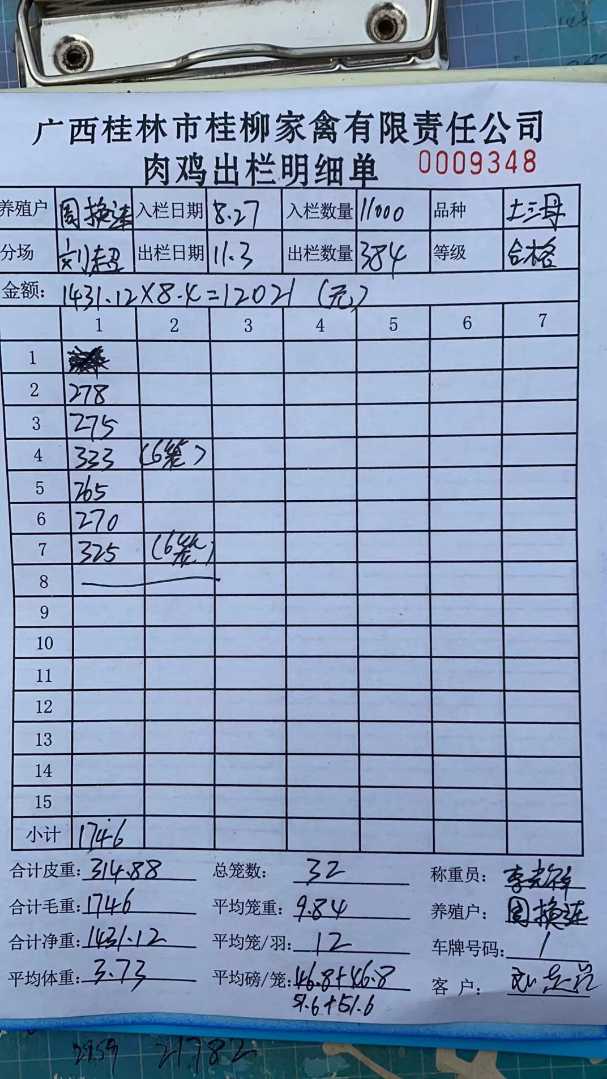 广西桂林市桂柳家禽有限责任公司
肉鸡出栏明细单 0009348
养殖户 周换连 入栏日期 8.27 入栏数量 11000 品种 土三母
分场 刘超 出栏日期 11.3 出栏数量 384 等级 合格
金额: 1431.12×8.4=12021 (元)
1 2 3 4 5 6 7
1
2 278
3 275
4 333 (6笼)
5 265
6 270
7 325 (6笼)
8
9
10
11
12
13
14
15
小计 1746
合计皮重: 314.88 总笼数: 32 称重员:
合计毛重: 1746 平均笼重: 9.84 养殖户: 周换连
合计净重: 1431.12 平均笼/羽: 12 车牌号码: 1
平均体重: 3.73 平均磅/笼: 46.8+46.8 客 户:
51.6+51.6
21782